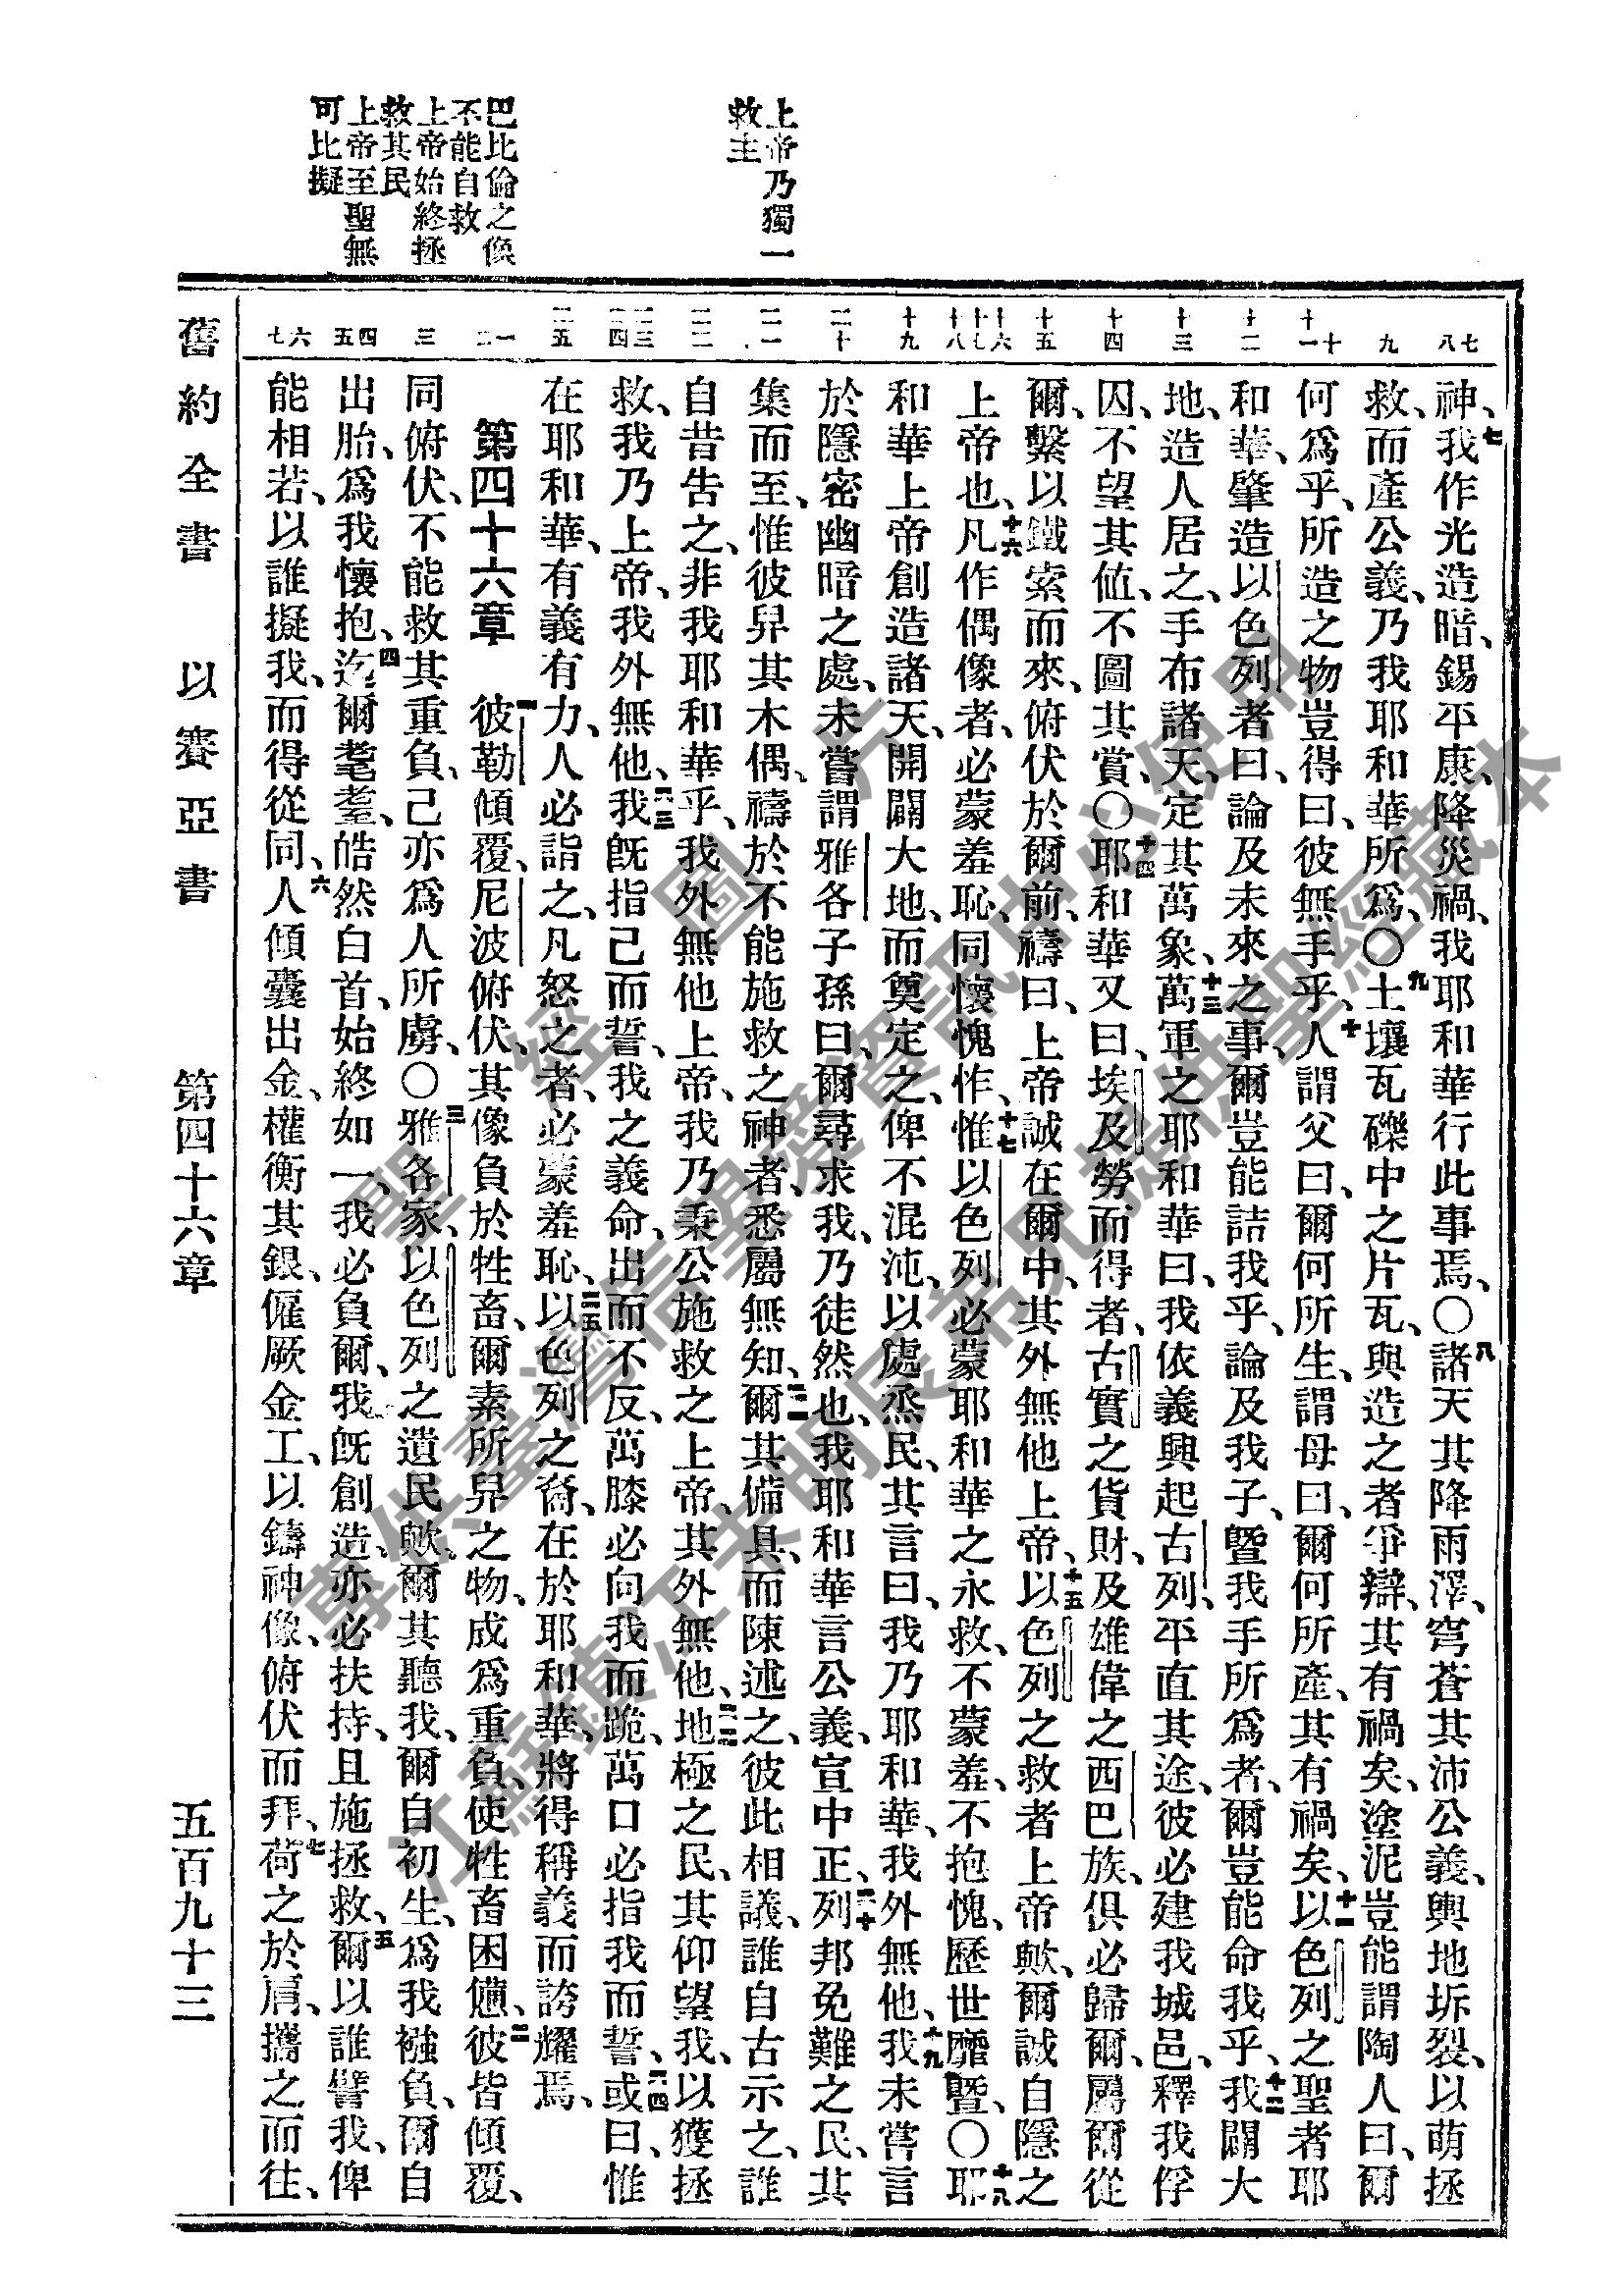 上帝乃獨一
救主
巴比倫之像
不能自救
上帝始終拯
救其民
上帝至聖無
可比擬
七八
九
十十一
十二
十三
十四
十五
十六十七十八
十九
二十
二一
二二
二三二四
二五
一二
三
四五
六七
神、七我作光造暗、錫平康、降災禍、我耶和華行此事焉、〇八諸天其降雨澤、穹蒼其沛公義、輿地坼裂、以萌拯
救、而產公義、乃我耶和華所爲、〇九土壤瓦礫中之片瓦、與造之者爭辯、其有禍矣、塗泥豈能謂陶人曰、爾
何爲乎、所造之物豈得曰、彼無手乎、十人謂父曰、爾何所生、謂母曰、爾何所產、其有禍矣、十一以色列之聖者耶
和華、肇造以色列者曰、論及未來之事、爾豈能詰我乎、論及我子、曁我手所爲者、爾豈能命我乎、十二我闢大
地、造人居之、手布諸天、定其萬象、十三萬軍之耶和華曰、我依義興起古列、平直其途、彼必建我城邑、釋我俘
囚、不望其値、不圖其賞、〇十四耶和華又曰、埃及勞而得者、古實之貨財、及雄偉之西巴族、俱必歸爾、屬爾從
爾、繫以鐵索而來、俯伏於爾前、禱曰、上帝誠在爾中、其外無他上帝、十五以色列之救者上帝歟、爾誠自隱之
上帝也、十六凡作偶像者、必蒙羞恥、同懷愧怍、十七惟以色列必蒙耶和華之永救、不蒙羞、不抱愧、歷世靡曁、〇十八耶
和華上帝創造諸天、開闢大地、而奠定之、俾不混沌、以處烝民、其言曰、我乃耶和華、我外無他、十九我未嘗言
於隱密幽暗之處、未嘗謂雅各子孫曰、爾尋求我、乃徒然也、我耶和華言公義、宣中正、二十列邦免難之民、其
集而至、惟彼舁其木偶、禱於不能施救之神者、悉屬無知、二一爾其備具、而陳述之、彼此相議、誰自古示之、誰
自昔告之、非我耶和華乎、我外無他上帝、我乃秉公施救之上帝、其外無他、二二地極之民、其仰望我、以獲拯
救、我乃上帝、我外無他、二三我旣指己而誓、我之義命、出而不反、萬膝必向我而跪、萬口必指我而誓、二四或曰、惟
在耶和華、有義有力、人必詣之、凡怒之者、必蒙羞恥、二五以色列之裔、在於耶和華、將得稱義而誇耀焉、
第四十六章　一彼勒傾覆、尼波俯伏、其像負於牲畜、爾素所舁之物、成爲重負、使牲畜困憊、二彼皆傾覆、
同俯伏、不能救其重負、己亦爲人所虜、〇三雅各家、以色列之遺民歟、爾其聽我、爾自初生、爲我襁負、爾自
出胎、爲我懷抱、四迄爾耄耋、皓然白首、始終如一、我必負爾、我旣創造、亦必扶持、且施拯救、五爾以誰譬我、俾
能相若、以誰擬我、而得從同、六人傾囊出金、權衡其銀、僱厥金工、以鑄神像、俯伏而拜、七荷之於肩、攜之而往、
舊約全書　以賽亞書　第四十六章　五百九十三
聖經圖片
專供臺灣信望愛資訊中心使用
江蘇鎮江末明辰弟兄提供聖經藏本